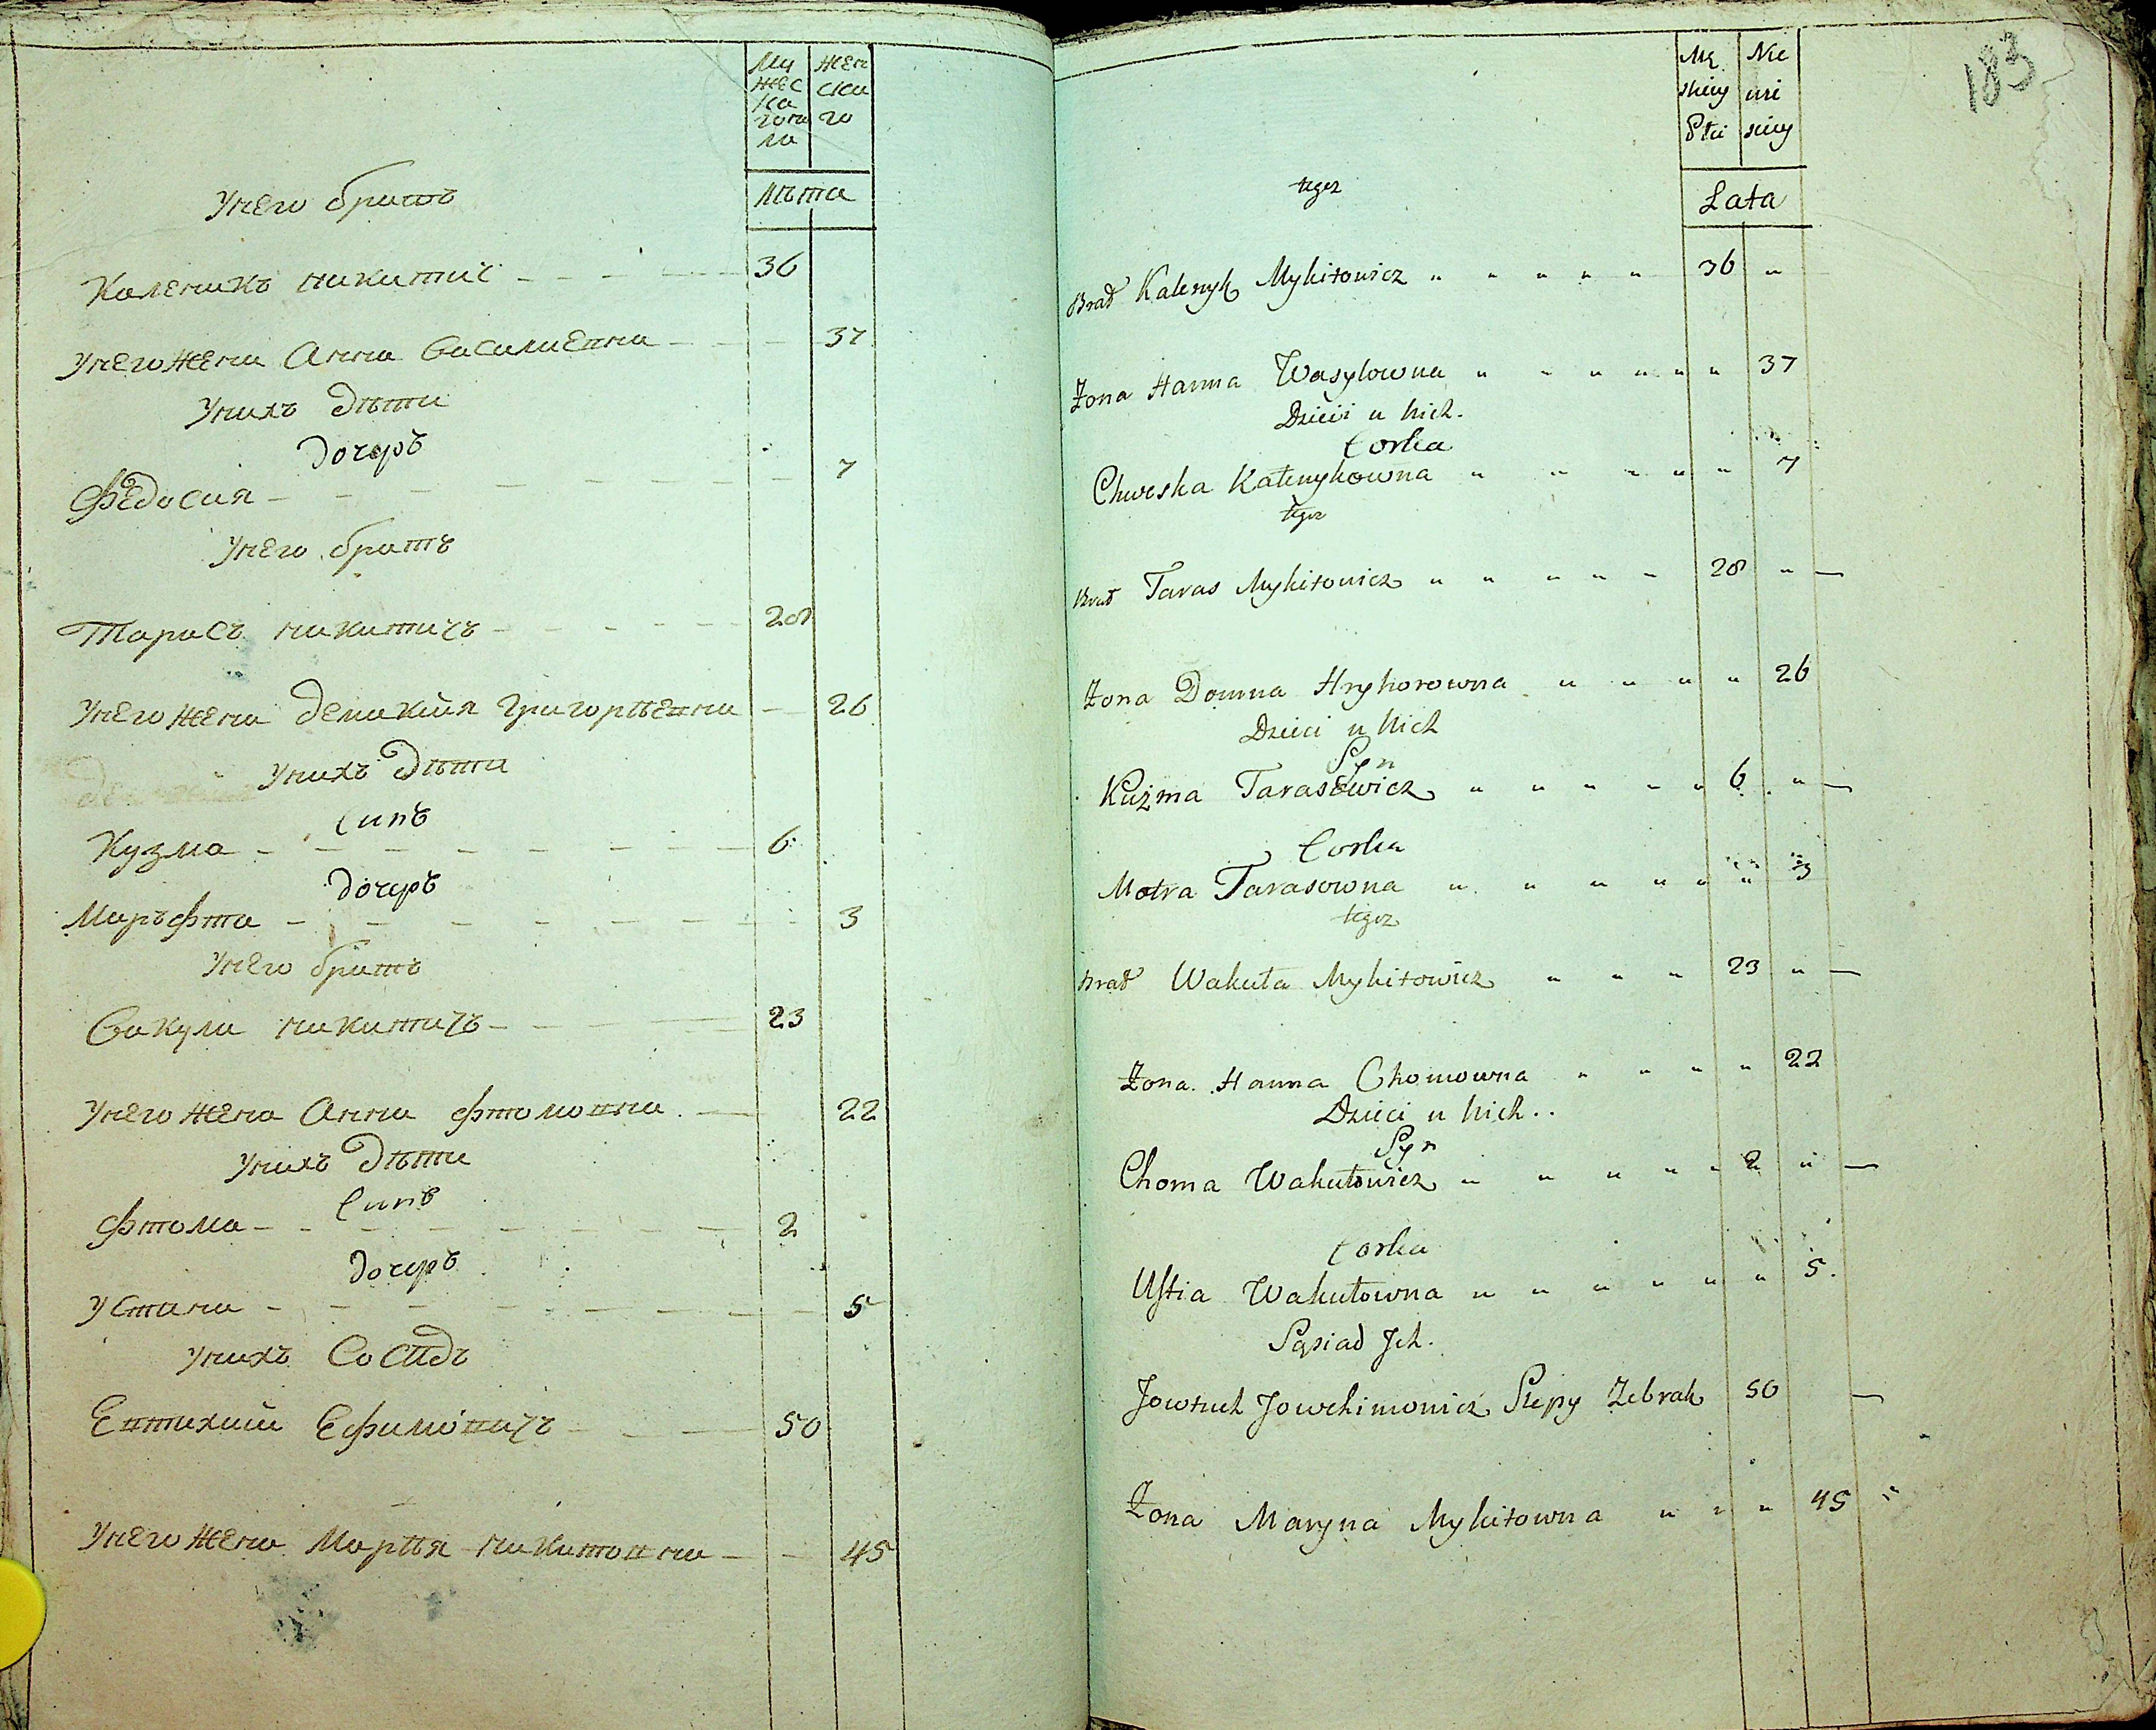 Му
жес
ка
гопо
ла
жен
ска
го
Лѣта
Унего братъ
Каленикъ никитич 36
Унего жена Анна Василиевна 37
Унихъ дѣти
дочеръ
Федосия 7
Унего братъ
Тарасъ никитичъ 28
Унего жена демикия Григорьевна 26
Унихъ дѣти
Синъ
Кузма 6
дочеръ
Маръфта 3
Унего братъ
Вакула никитичъ 23
Унего жена Анна фтомовна 22
Унихъ дѣти
Синъ
фтома 2
дочеръ
Устина 5
Унихъ Сосидъ
Евтихий Ефимовичъ 50
Унего жена Марья никитовна 45
183
Mę
skiey
Płci
Nie
wie
sciey
Lata
tegoz
Brat Kalenyk Mykitowicz 36
Żona Hanna Wasylowna 37
Dzieci u Nich.
Corka
Chweska Kalenykowna 7
tegoz
Brat Taras Mykitowicz 28
Żona Domna Hryhorowna 26
Dzieci u Nich
Syn
Kuźma Tarasewicz 6
Corka
Motra Tarasowna 3
tegoz
Brat Wakuła Mykitowicz 23
Żona Hanna Chomowna 22
Dzieci u Nich..
Syn
Choma Wakułowicz 2
Corka
Ustia Wakułowna 5.
Sąsiad Ich.
Jowtuch Jowchimowicz Slepy Żebrak 50
Żona Maryna Mykitowna 45